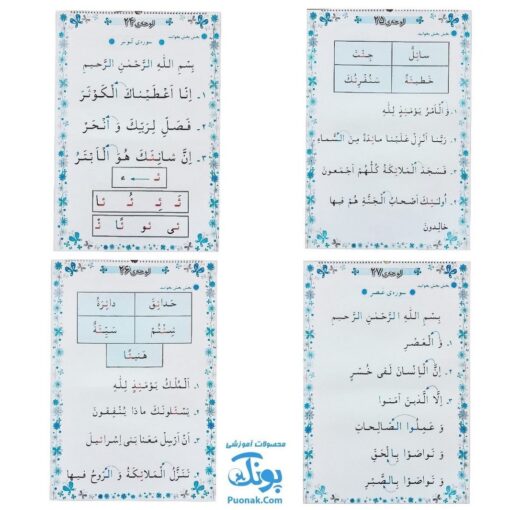 لوحه‌ی ۲۴
بخش بخش بخوانید
سوره‌ی کوثر
بِسْمِ اللهِ الرَّحْمٰنِ الرَّحیمِ
۱. اِنّا اَعْطَیْناكَ الْكَوْثَرَ
۲. فَصَلِّ لِرَبِّكَ وَ انْحَرْ
۳. اِنَّ شانِئَكَ هُوَ الْاَبْتَرُ
ئـ ← ء
ئَـ ئِـ ئُـ ئا
ئی ئو ئًا ئْـ
لوحه‌ی ۲۵
بخش بخش بخوانید
سائِلُ جِئْتَ
خَطیئَةُ سَنُقْرِئُكَ
۱. وَ الْاَمْرُ یَوْمَئِذٍ لِلّٰهِ
۲. رَبَّنا اَنْزِلْ عَلَیْنا مائِدَةً مِنَ السَّماءِ
۳. فَسَجَدَ الْمَلائِكَةُ كُلُّهُمْ اَجْمَعونَ
۴. اُولٰئِكَ اَصْحابُ الْجَنَّةِ هُمْ فیها
خالِدونَ
لوحه‌ی ۲۶
بخش بخش بخوانید
حَدائِقَ دائِرَةُ
شِئْتُمْ سَیِّئَةُ
هَنیئًا
۱. اَلْمُلْكُ یَوْمَئِذٍ لِلّٰهِ
۲. یَسْئَلونَكَ ماذا یُنْفِقونَ
۳. اَنْ اَرْسِلْ مَعَنا بَنی اِسْرائیلَ
۴. تَنَزَّلُ الْمَلائِكَةُ وَ الرّوحُ فیها
لوحه‌ی ۲۷
بخش بخش بخوانید
سوره‌ی عصر
بِسْمِ اللهِ الرَّحْمٰنِ الرَّحیمِ
۱. وَ الْعَصْرِ
۲. اِنَّ الْاِنْسانَ لَفی خُسْرٍ
۳. اِلَّا الَّذینَ آمَنوا
وَ عَمِلُوا الصّالِحاتِ
وَ تَواصَوْا بِالْحَقِّ
وَ تَواصَوْا بِالصَّبْرِ
محصولات آموزشی
پونک
Puonak.Com